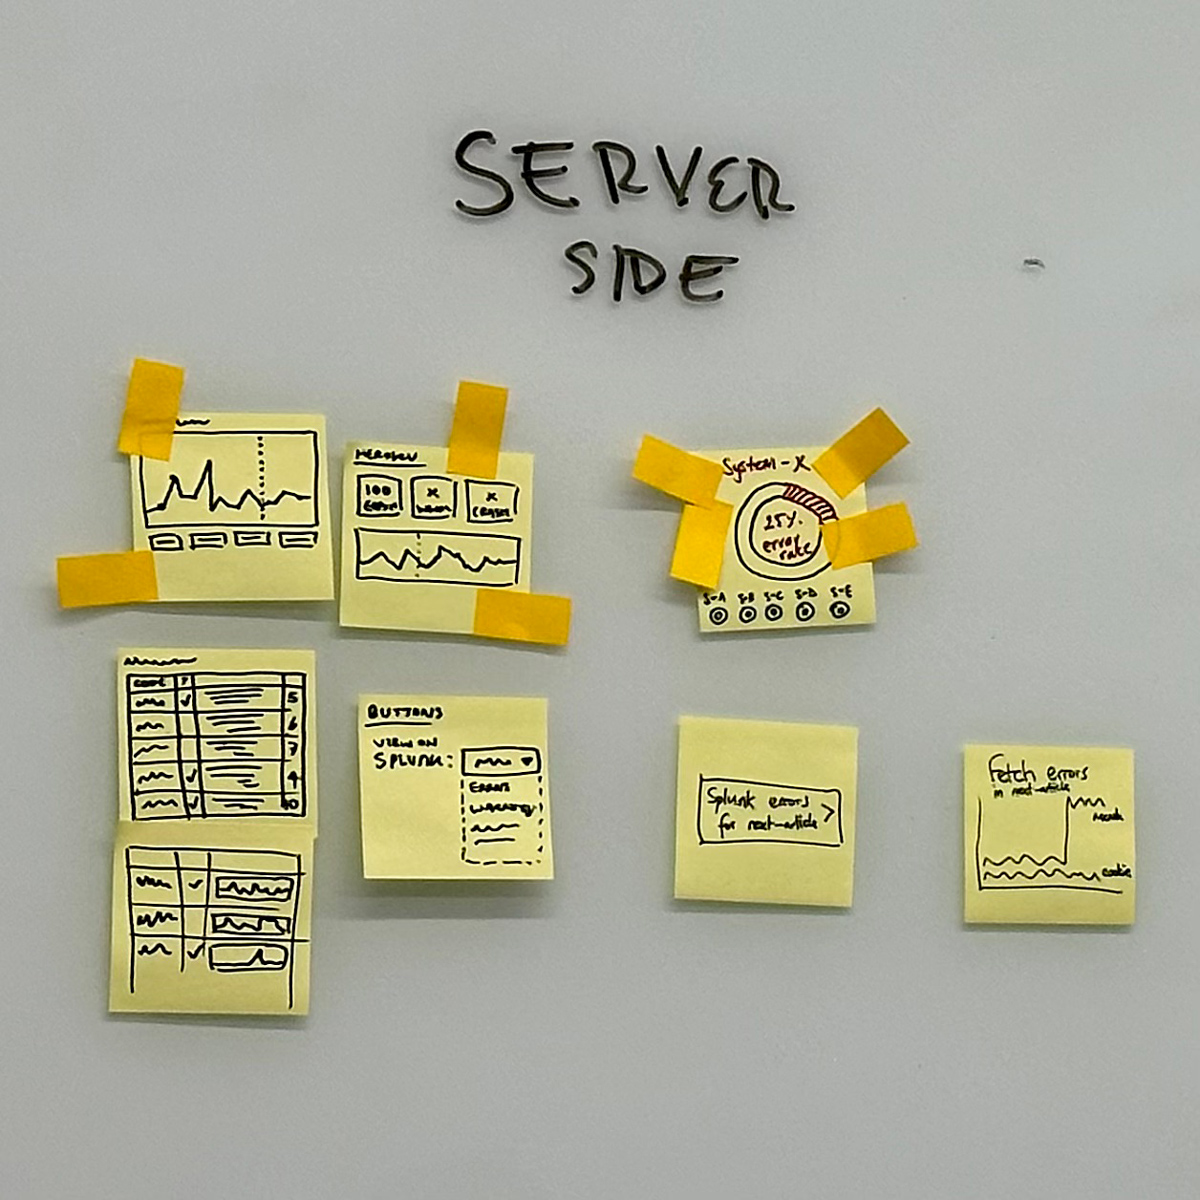 SERVER
SIDE
HEROKU
100
X
X
System-X
25%
error
rate
S-A S-B S-C S-D S-E
5
6
7
9
10
BUTTONS
VIEW ON
SPLUNK:
ERRORS
Splunk errors >
for next-article
Fetch errors
in next-article
cookie